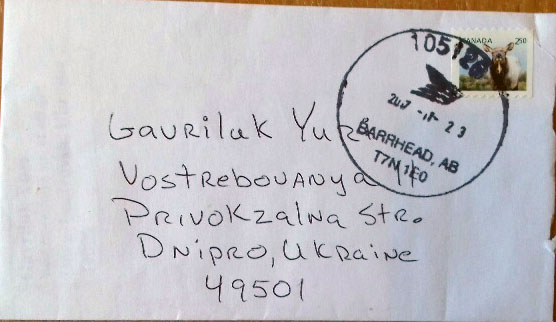 CANADA 250
105128
BARRHEAD, AB
T7N 1E0
Gavriluk
Vostrebovanya 11
Privokzalna Str.
Dnipro, Ukraine
49501